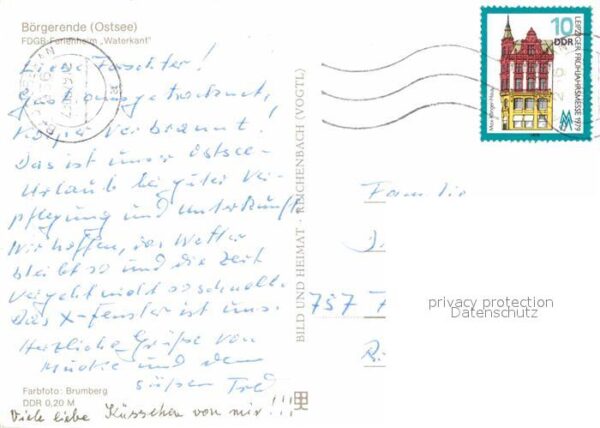 Börgerende (Ostsee)
FDGB-Ferienheim „Waterkant"
Liebe
Gut ausgetrocknet,
Körper verbrannt!
Das ist unser Ostsee-
Urlaub bei guter Ver-
pflegung und Unterkunft
Wir hoffen, das Wetter
bleibt so und die Zeit
vergeht nicht so schnell.
Das X-Fenster ist uns.
Herzliche Grüße von
und dem
süßen
Farbfoto: Brumberg
DDR 0,20 M
Viele liebe Küsschen von mir!!!
BILD UND HEIMAT · REICHENBACH (VOGTL)
10
DDR
LEIPZIGER FRÜHJAHRSMESSE 1979
MM
Familie
J.
757 F
privacy protection
Datenschutz